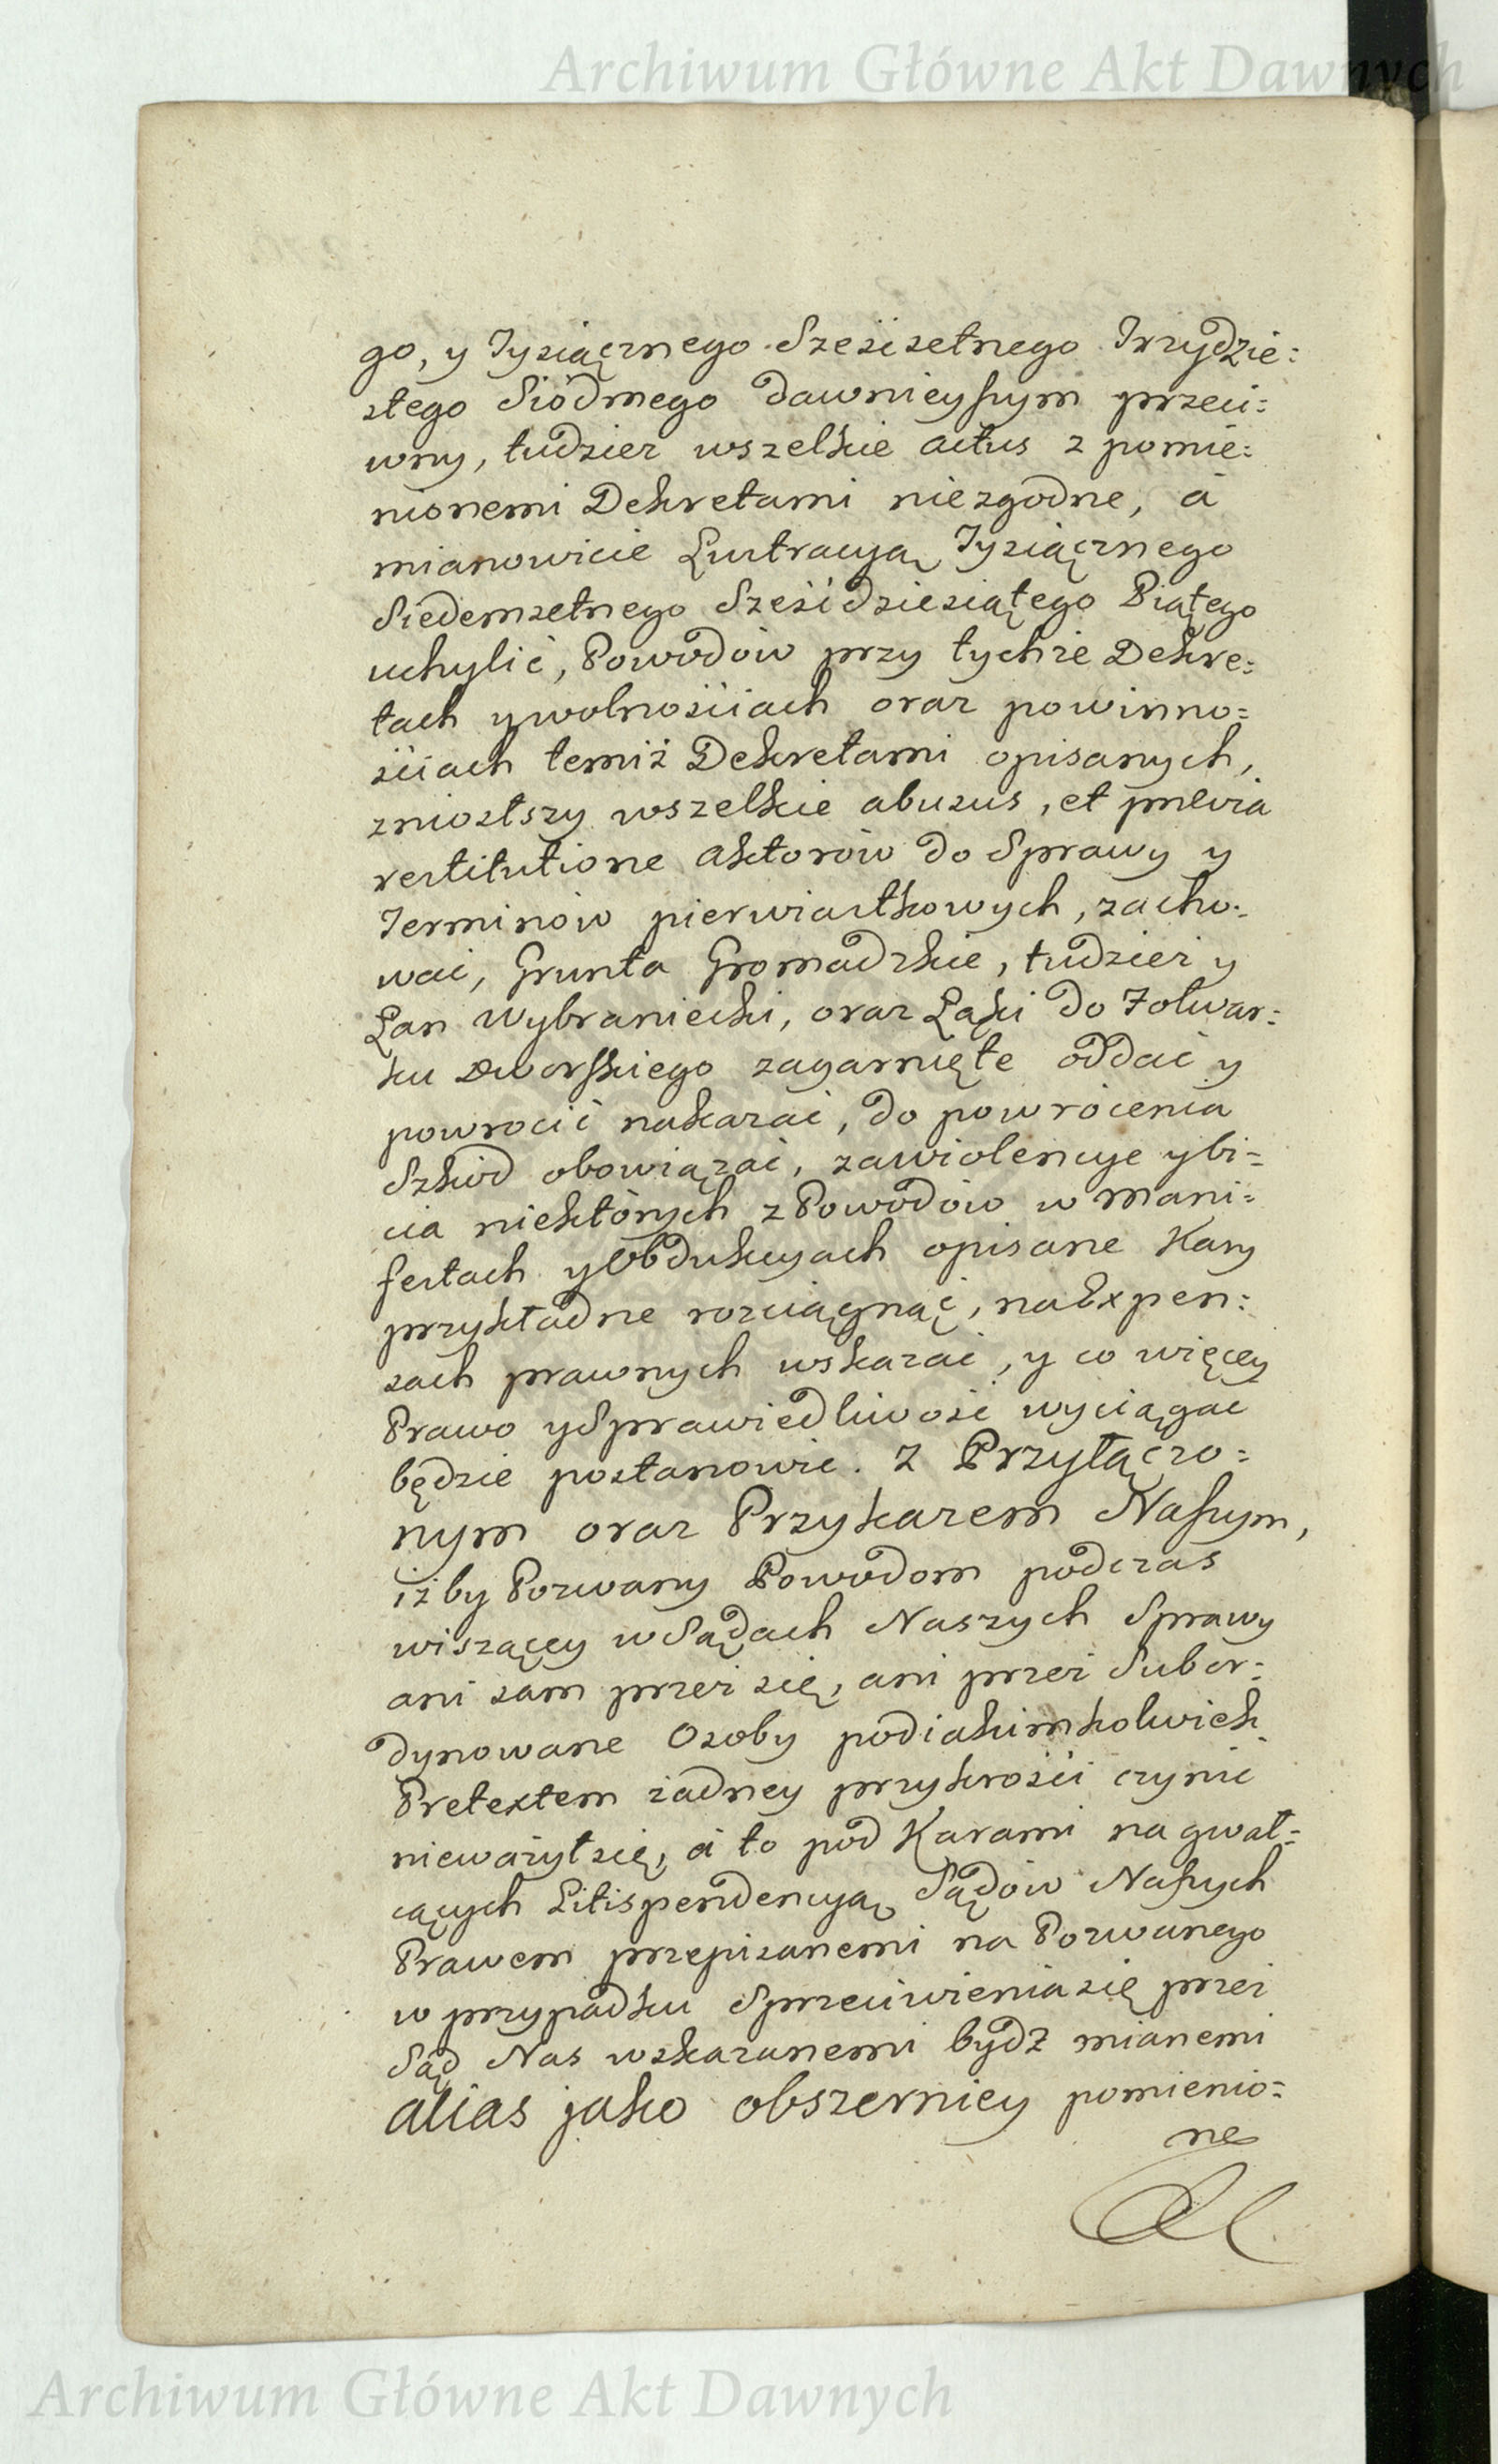 Archiwum Główne Akt Dawnych
go, y Tysiącznego Sześćsetnego Trzydzie=
stego Siódmego dawnieyszym przeci=
wny, tudzież wszelkie actus z pomie=
nionemi Dekretami niezgodne, á
mianowicie Lustracyą Tysiącznego
Siedemsetnego Sześćdziesiątego Piątego
uchylić, Powodów przy tychże Dekre=
tach y wolnościach oraz powinno=
ściach temiż Dekretami opisanych,
zniozłszy wszelkie abusus, et prævia
restitutione Aktorów do Sprawy y
Terminów pierwiastkowych, zacho=
wać, Grunta Gromadzkie, tudzież y
Łan Wybraniecki, oraz Łąki do Folwar=
ku Dworskiego zagarnięte oddać y
powrócić nakazać, do powrócenia
Szkód obowiązać, za wiolencye y bi=
cia niektórych z Powodów w Mani=
festach y Obdukcyach opisane Kary
przykładne rozciągnąć, na Expen=
sach prawnych wskazać, y co więcey
Prawo y Sprawiedliwość wyciągać
będzie postanowić. Z Przyłączo=
nym oraz Przykazem Naszym,
iżby Pozwany Powodom podczas
wiszącey w Sądach Naszych Sprawy
ani sam przez się, ani przez Subor=
dynowane Osoby pod iakimkolwiek
Pretextem żadney przykrości czynić
nieważył się, á to pod Karami na gwał=
cących Litispendencyą Sądów Naszych
Prawem przepisanemi na Pozwanego
w przypadku Sprzeciwienia się przez
Sąd Nas wskazanemi bydź mianemi
alias jako obszerniey pomienio=
ne
Archiwum Główne Akt Dawnych